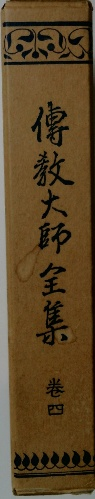 傳教大師全集
卷四